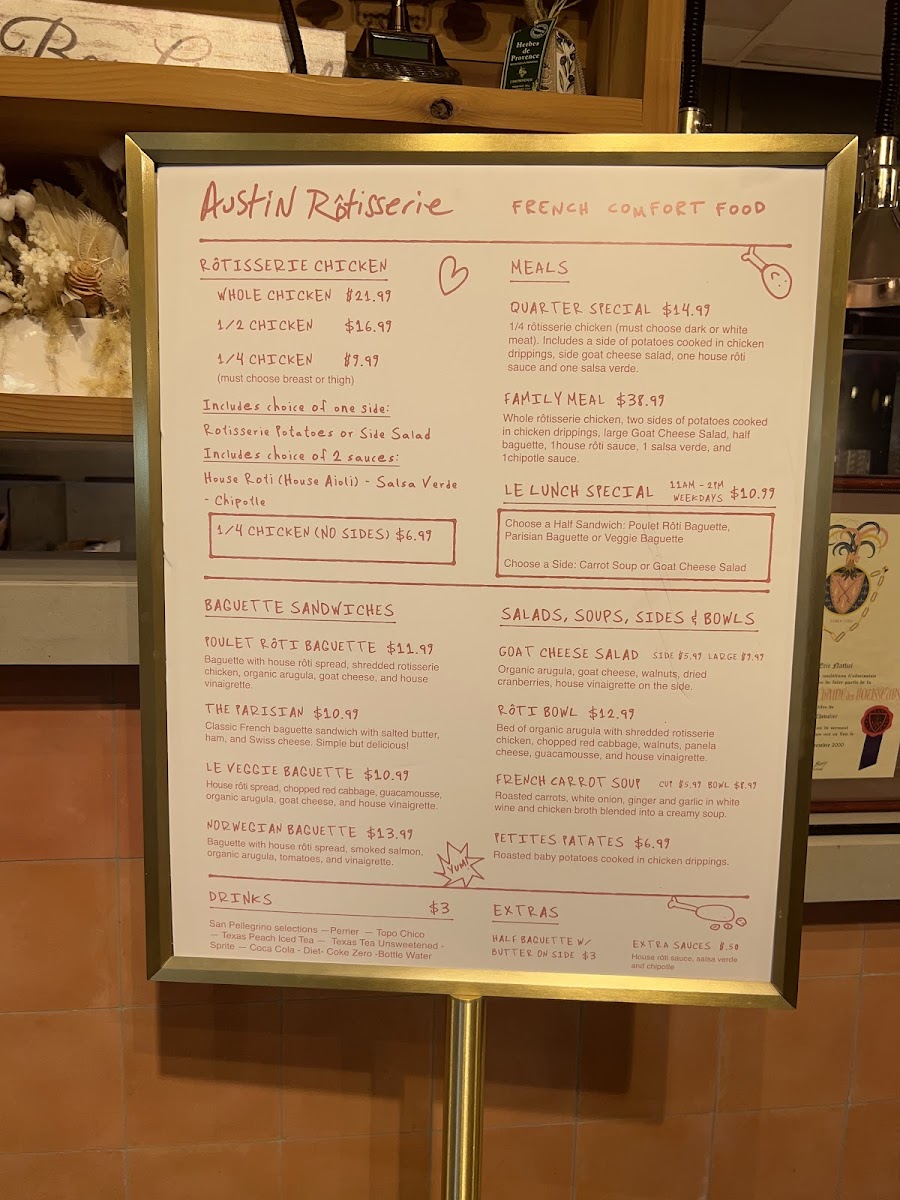 Herbes
de
Provence
AUSTIN Rôtisserie
FRENCH COMFORT FOOD
RÔTISSERIE CHICKEN
WHOLE CHICKEN $21.99
1/2 CHICKEN $16.99
1/4 CHICKEN $9.99
(must choose breast or thigh)
Includes choice of one side:
Rotisserie Potatoes or Side Salad
Includes choice of 2 sauces:
House Roti (House Aioli) - Salsa Verde
- Chipotle
1/4 CHICKEN (NO SIDES) $6.99
MEALS
QUARTER SPECIAL $14.99
1/4 rôtisserie chicken (must choose dark or white
meat). Includes a side of potatoes cooked in chicken
drippings, side goat cheese salad, one house rôti
sauce and one salsa verde.
FAMILY MEAL $38.99
Whole rôtisserie chicken, two sides of potatoes cooked
in chicken drippings, large Goat Cheese Salad, half
baguette, 1house rôti sauce, 1 salsa verde, and
1chipotle sauce.
LE LUNCH SPECIAL 11AM - 2PM WEEKDAYS $10.99
Choose a Half Sandwich: Poulet Rôti Baguette,
Parisian Baguette or Veggie Baguette
Choose a Side: Carrot Soup or Goat Cheese Salad
BAGUETTE SANDWICHES
POULET RÔTI BAGUETTE $11.99
Baguette with house rôti spread, shredded rotisserie
chicken, organic arugula, goat cheese, and house
vinaigrette.
THE PARISIAN $10.99
Classic French baguette sandwich with salted butter,
ham, and Swiss cheese. Simple but delicious!
LE VEGGIE BAGUETTE $10.99
House rôti spread, chopped red cabbage, guacamousse,
organic arugula, goat cheese, and house vinaigrette.
NORWEGIAN BAGUETTE $13.99
Baguette with house rôti spread, smoked salmon,
organic arugula, tomatoes, and vinaigrette.
YUM!
SALADS, SOUPS, SIDES & BOWLS
GOAT CHEESE SALAD SIDE $5.99 LARGE $9.99
Organic arugula, goat cheese, walnuts, dried
cranberries, house vinaigrette on the side.
RÔTI BOWL $12.99
Bed of organic arugula with shredded rotisserie
chicken, chopped red cabbage, walnuts, panela
cheese, guacamousse, and house vinaigrette.
FRENCH CARROT SOUP CUP $5.99 BOWL $8.99
Roasted carrots, white onion, ginger and garlic in white
wine and chicken broth blended into a creamy soup.
PETITES PATATES $6.99
Roasted baby potatoes cooked in chicken drippings.
DRINKS $3
San Pellegrino selections — Perrier — Topo Chico
— Texas Peach Iced Tea — Texas Tea Unsweetened -
Sprite — Coca Cola - Diet- Coke Zero -Bottle Water
EXTRAS
HALF BAGUETTE W/
BUTTER ON SIDE $3
EXTRA SAUCES $.50
House rôti sauce, salsa verde
and chipotle